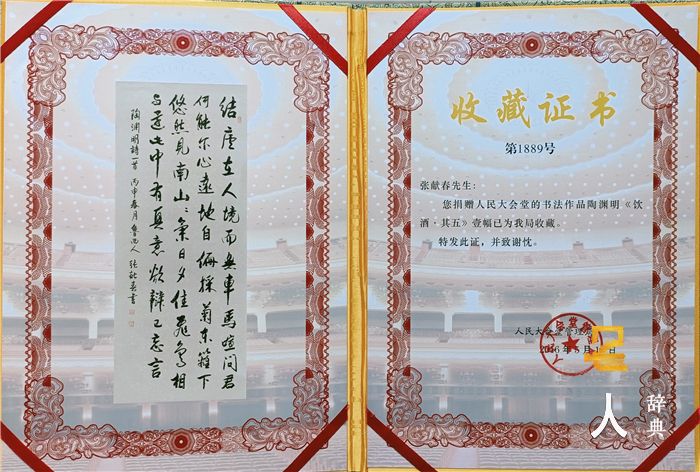 结廬在人境而無車馬喧问君
何能尔心遠地自偏採菊东籬下
悠然見南山〻氣日夕佳飛鳥相
与還此中有真意欲辯已忘言
陶渊明詩一首 丙申春月 魯西人 张献春書
收藏证书
第1889号
张献春先生：
您捐赠人民大会堂的书法作品陶渊明《饮
酒·其五》壹幅已为我局收藏。
特发此证，并致谢忱。
人民大会堂管理
年5月
名人辞典